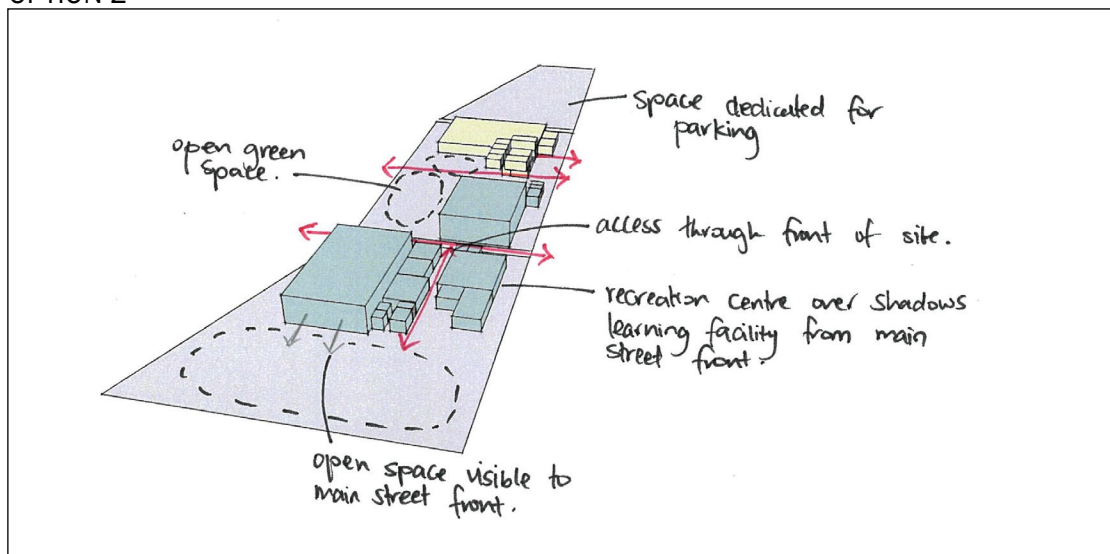 OPTION 2
space dedicated for
parking
open green
space.
access through front of site.
recreation centre over shadows
learning facility from main
street front.
open space visible to
main street front.